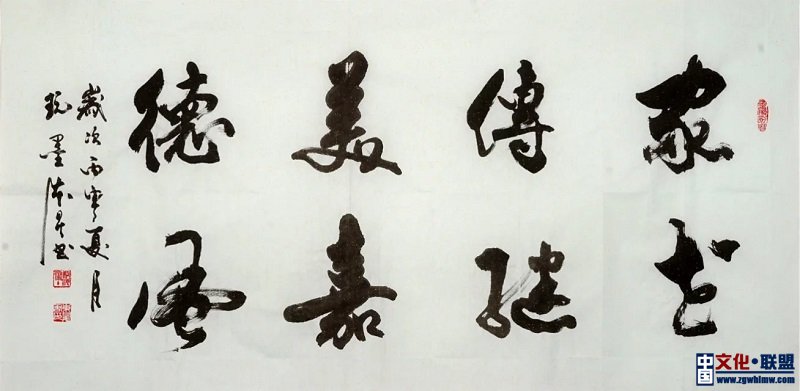 家傳美德
世繼嘉風
歲次丙寅夏月
墨書
中国 文化·联盟
www.zgwhlmw.com